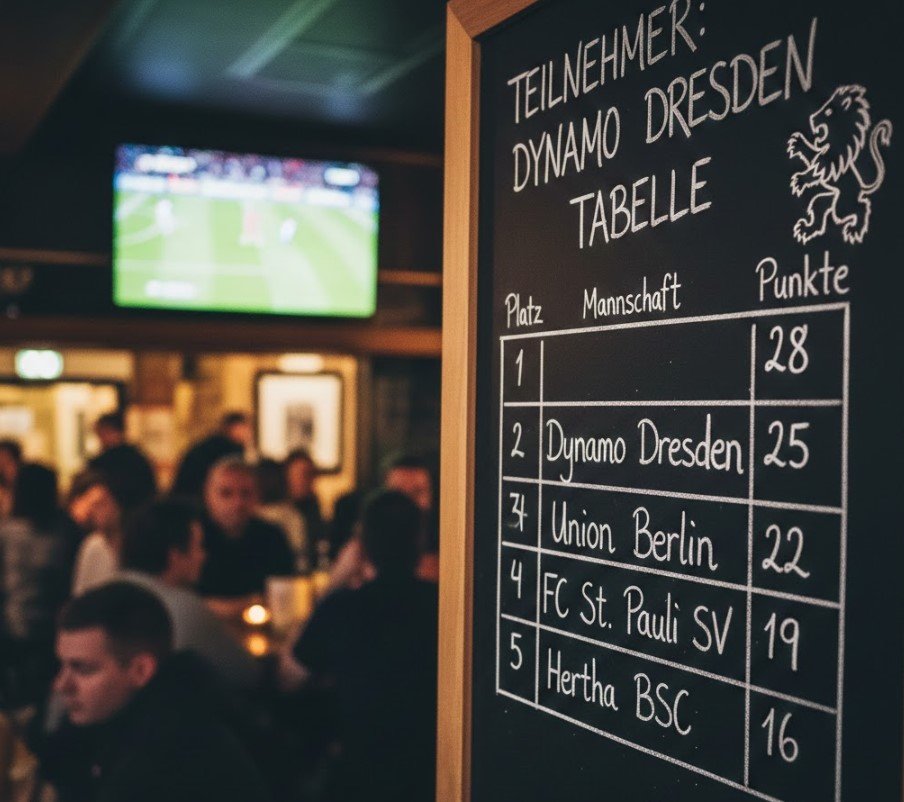 TEILNEHMER:
DYNAMO DRESDEN
TABELLE
Platz Mannschaft Punkte
1 28
2 Dynamo Dresden 25
Union Berlin 22
4 FC St. Pauli SV 19
5 Hertha BSC 16